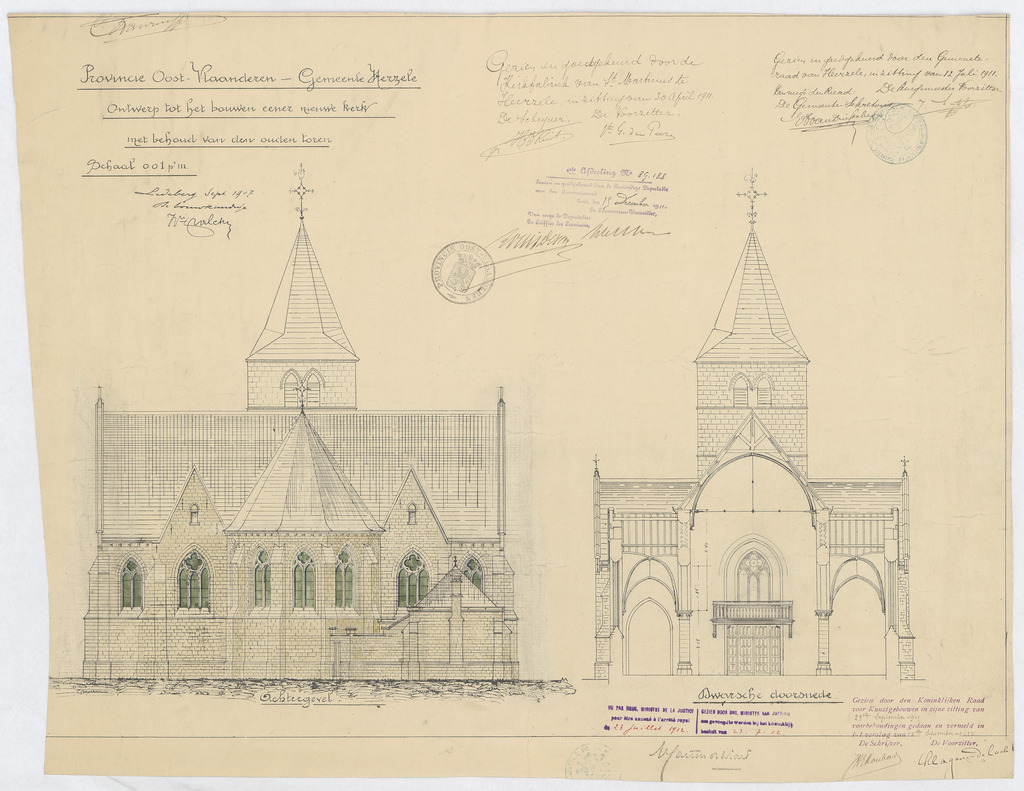 Provincie Oost-Vlaanderen – Gemeente Herzele
Ontwerp tot het bouwen eener nieuwe kerk
met behoud van den ouden toren
Schaal 0.01 p. m.
Ledeberg Sept 1907
De bouwkundige
Gezien en goedgekeurd door de
Kerkfabriek van St Martinus te
Heerzele, in zitting van 30 April 1911.
De Schrijver, De Voorzitter,
Gezien en goedgekeurd door den Gemeente-
raad van Heerzele, in zitting van 12 Juli 1911.
Vanwege den Raad.
De Burgemeester Voorzitter,
De Gemeente Sekretaris
Afdeeling No 89.188
Gezien en goedgekeurd door de Bestendige Deputatie
Gent, den 15 December 1911.
Van wege de Deputatie:
De Griffier der Provincie,
PROVINCIE OOST-VLAANDEREN
Achtergevel.
Dwarsche doorsnede
VU PAR NOUS, MINISTRE DE LA JUSTICE
pour être annexé à l'arrêté royal
du 23 juillet 1912.
GEZIEN DOOR ONS, MINISTER VAN JUSTITIE
om gevoegd te worden bij het koninklijk
besluit van 23. 7. 12.
Gezien door den Koninklijken Raad
voor Kunstgebouwen in zijne zitting van
September 1911
voorbehoudingen gedaan en vermeld in
het verslag van September
De Schrijver, De Voorzitter,